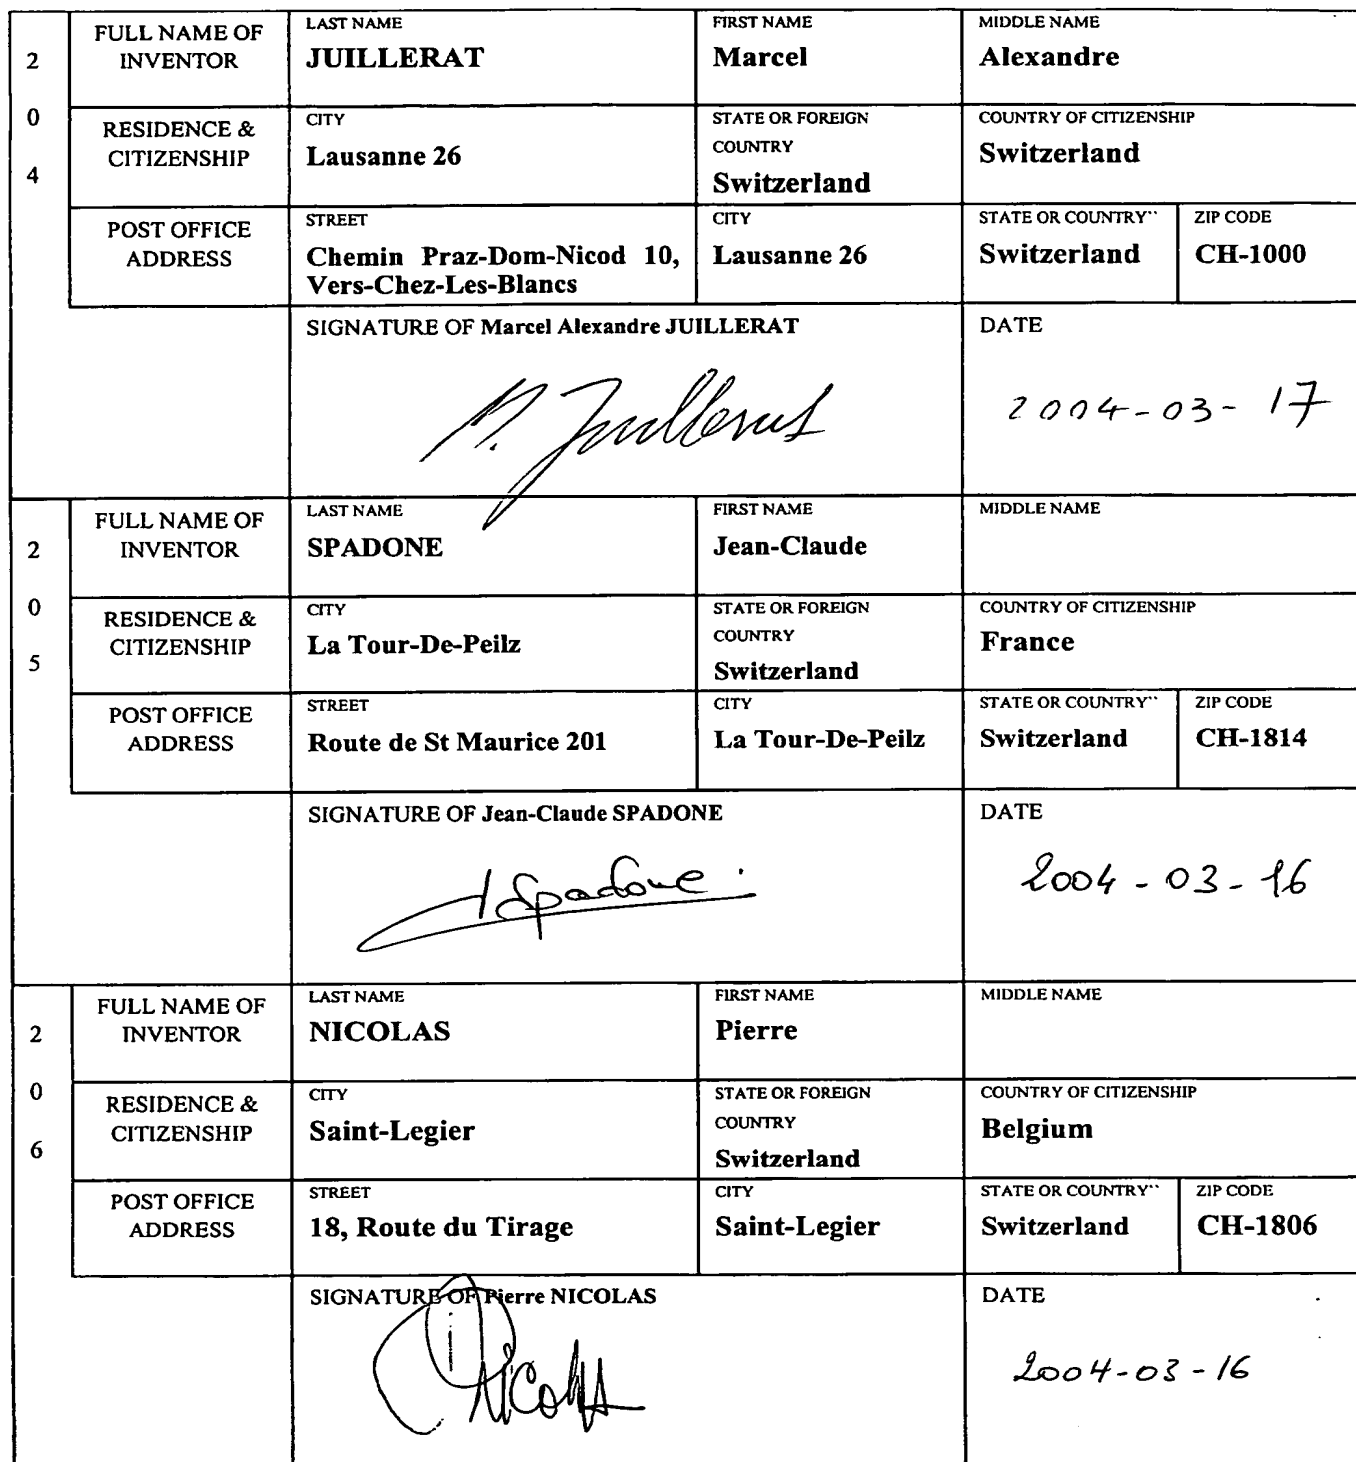 2 0 4
FULL NAME OF INVENTOR
LAST NAME
JUILLERAT
FIRST NAME
Marcel
MIDDLE NAME
Alexandre
RESIDENCE & CITIZENSHIP
CITY
Lausanne 26
STATE OR FOREIGN COUNTRY
Switzerland
COUNTRY OF CITIZENSHIP
Switzerland
POST OFFICE ADDRESS
STREET
Chemin Praz-Dom-Nicod 10,
Vers-Chez-Les-Blancs
CITY
Lausanne 26
STATE OR COUNTRY``
Switzerland
ZIP CODE
CH-1000
SIGNATURE OF Marcel Alexandre JUILLERAT
M. Juillerat
DATE
2004-03-17
2 0 5
FULL NAME OF INVENTOR
LAST NAME
SPADONE
FIRST NAME
Jean-Claude
MIDDLE NAME
RESIDENCE & CITIZENSHIP
CITY
La Tour-De-Peilz
STATE OR FOREIGN COUNTRY
Switzerland
COUNTRY OF CITIZENSHIP
France
POST OFFICE ADDRESS
STREET
Route de St Maurice 201
CITY
La Tour-De-Peilz
STATE OR COUNTRY``
Switzerland
ZIP CODE
CH-1814
SIGNATURE OF Jean-Claude SPADONE
Spadone
DATE
2004-03-16
2 0 6
FULL NAME OF INVENTOR
LAST NAME
NICOLAS
FIRST NAME
Pierre
MIDDLE NAME
RESIDENCE & CITIZENSHIP
CITY
Saint-Legier
STATE OR FOREIGN COUNTRY
Switzerland
COUNTRY OF CITIZENSHIP
Belgium
POST OFFICE ADDRESS
STREET
18, Route du Tirage
CITY
Saint-Legier
STATE OR COUNTRY``
Switzerland
ZIP CODE
CH-1806
SIGNATURE OF Pierre NICOLAS
Nicolas
DATE
2004-03-16